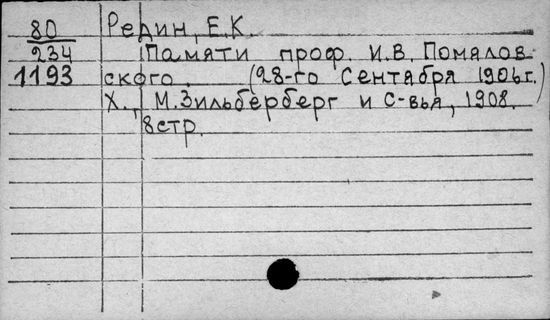 80 Редин, Е.К.
234 Памяти проф. И.В. Помялов-
1193 ского. (28-го Сентября 1906г.)
Х., М.Зильберберг и С-вья, 1908.
8стр.